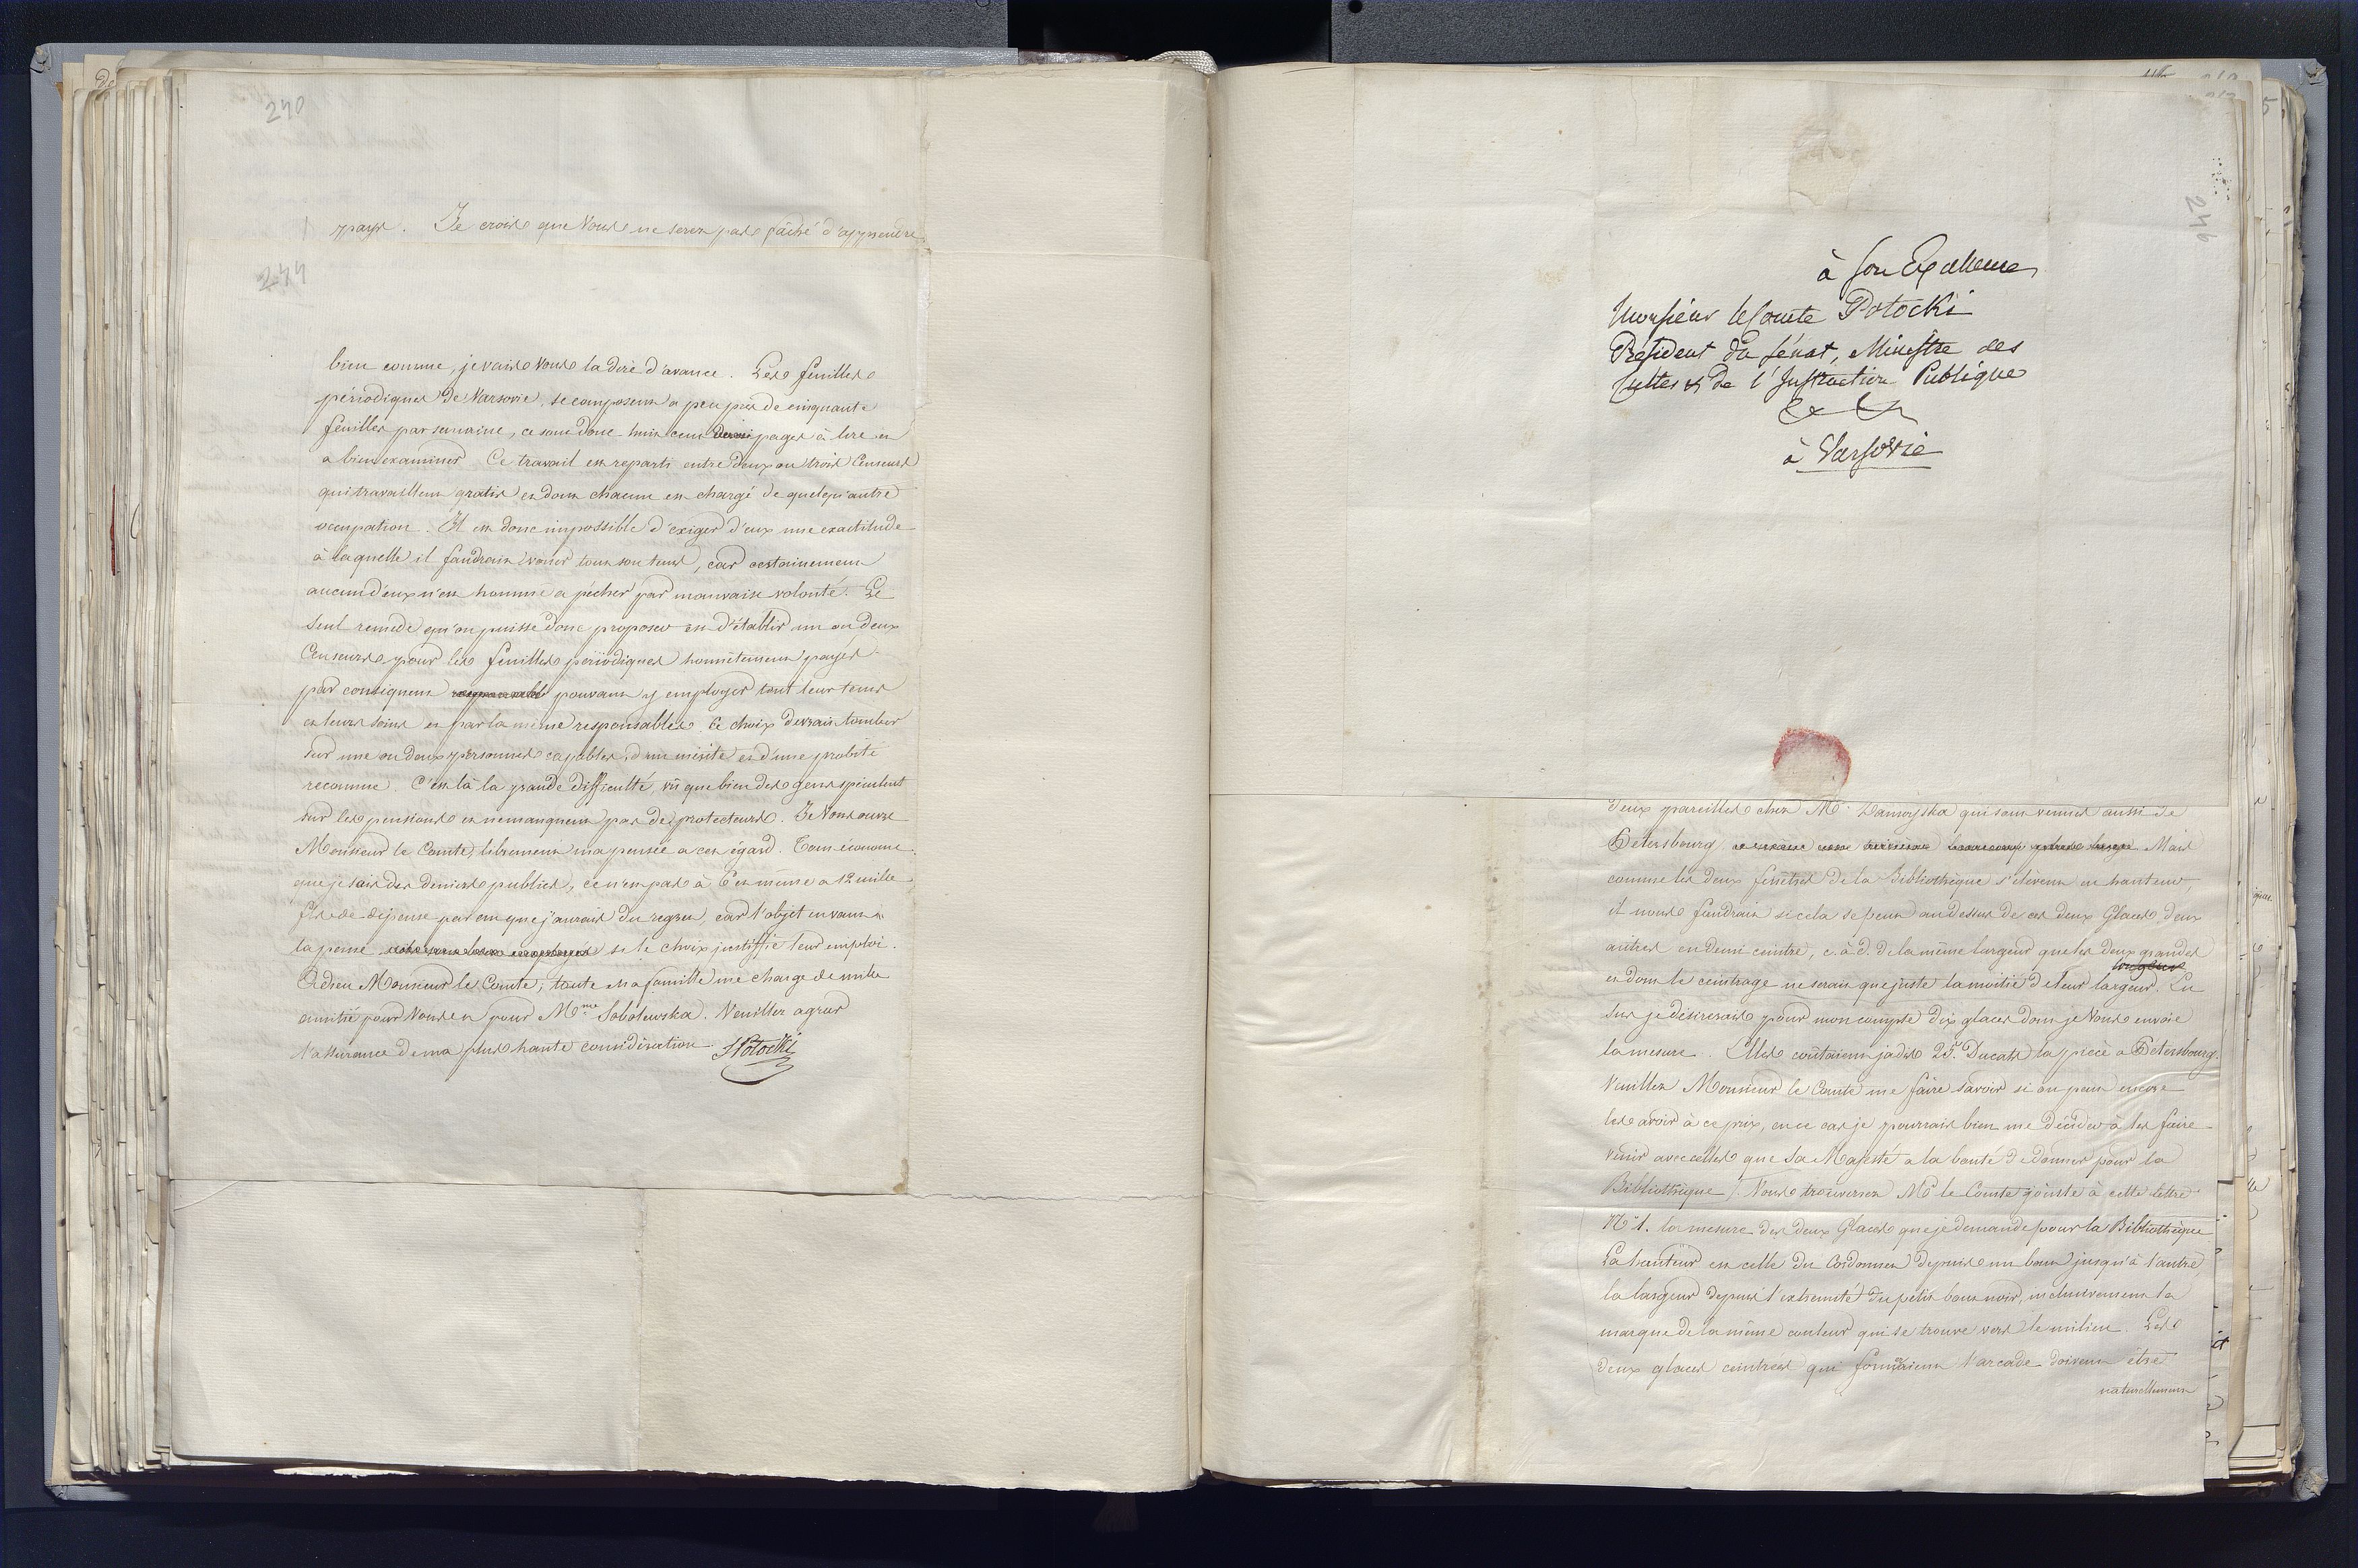 240
pays. Je crois que Vous ne serez pas fâché d'apprendre
244
bien comme, je vais Vous la dire d'avance. Les feuilles
périodiques de Varsovie, se composent a peu près de cinquante
feuilles par semaine, ce sont donc huit cent pages à lire et
a bien examiner. Ce travail est reparti entre deux ou trois Censeurs
qui travaillent gratis et dont chacun est chargé de quelqu'autre
occupation. Il est donc impossible d'exiger d'eux une exactitude
à laquelle il faudrait vouer tout son tems, car certainement
aucun d'eux n'est homme a pécher par mauvaise volonté. Le
seul remede qu'on puisse donc proposer est d'établir un ou deux
Censeurs pour les feuilles périodiques honnêtement payés
par consequent pouvant y employer tout leur tems
et leurs soins et par la même responsables. Ce choix devrait tomber
sur une ou deux personnes capables, d'un mérite et d'une probité
reconnue. C'est là la grande difficulté, vû que bien des gens spéculent
sur les pensions et ne manquent pas de protecteurs. Je Vous ouvre
Monsieur le Comte, librement ma pensée a cet égard. Tout econome
que je sais des deniers publics, ce n'est pas à 6 et même a 12 mille
fl. de dépense par an que j'aurais du regret, car l'objet en vaut
la peine si le choix justiffie leur emploi.
Adieu Monsieur le Comte, toute ma famille me charge de mille
amitié pour Vous et pour Mme Sobolewska. Veuillez agréer
l'assurance de ma plus haute considération SPotocki
246
à Son Excellence
Monsieur le Comte Potocki
Président du Sénat, Ministre des
Cultes & de l'Instruction Publique
à Varsovie
deux pareilles chez Me Zamoyska qui sont venues aussi de
Petersbourg Mais
comme les deux fenêtres de la Bibliothèque s'élèvent en hauteur,
il nous faudrait si cela se peut au dessus de ces deux Glaces deux
autres en demi ceintre, c. à d. de la même largeur que les deux grandes
et dont le ceintrage ne serait que juste la moitié de leur largeur.
sus je désirerais pour mon compte dix glaces dont je Vous envoie
la mesure. Elles coûtaient jadis 25. Ducats la pièce a Petersbourg.
Veuillez Monsieur le Comte me faire savoir si on peut encore
les avoir à ce prix, en ce cas je pourrais bien me décider à les faire
venir avec celles que Sa Majesté a la bonté de donner pour la
Bibliothèque. Vous trouverez Mr le Comte jointe à cette lettre
No 1. la mesure des deux Glaces que je demande pour la Bibliothèque
La hauteur est celle du Cordonnet depuis un bout jusqu'à l'autre,
la largeur depuis l'extremité du petit bout noir, inclusivement la
marque de la même couleur qui se trouve vers le milieu. Les
deux glaces ceintrées qui formeraient l'arcade doivent être
naturellement